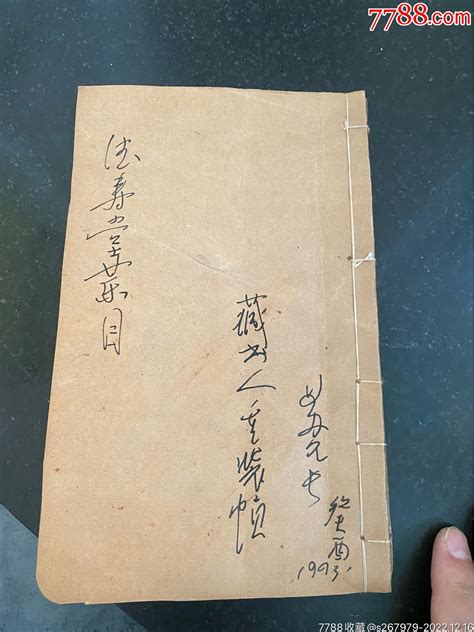 7788.com
德寿堂药目
藏书人重装帧
癸酉
1993.
7788收藏@s267979-2022.12.16